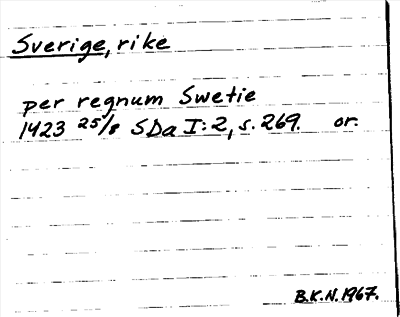 Sverige, rike
per regnum Swetie
1423 25/8 SDa I:2, s. 269. or.
B.K.N. 1967.